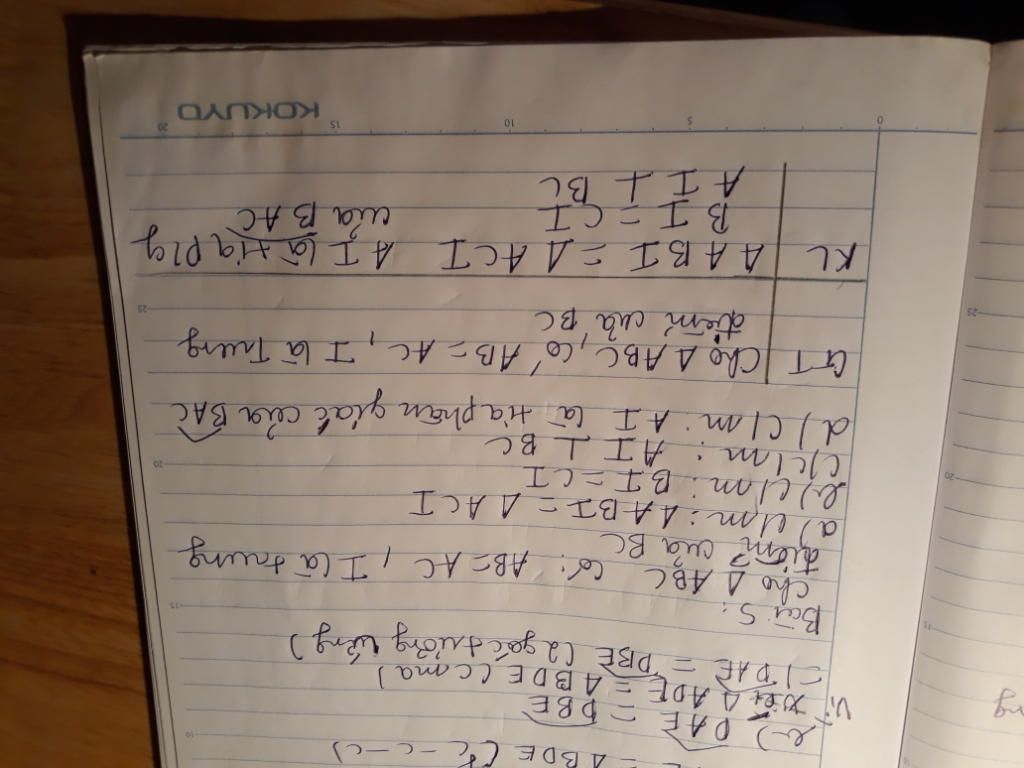 = ∆BDE (c-c-c)
b) DAE = DBE
Vì xét ∆ADE = ∆BDE (cma)
=) DAE = DBE (2 góc tương ứng)
Bài 5:
Cho ∆ABC có: AB=AC, I là trung
điểm của BC
a) C/m: ∆ABI = ∆ACI
b) C/m: BI = CI
c) C/m: AI ⊥ BC
d) C/m: AI là tia phân giác của BAC
GT Cho ∆ABC, có AB=AC, I là Trung
điểm của BC
KL ∆ABI = ∆ACI AI là tia plg
BI = CI của BAC
AI ⊥ BC
KOKUYO